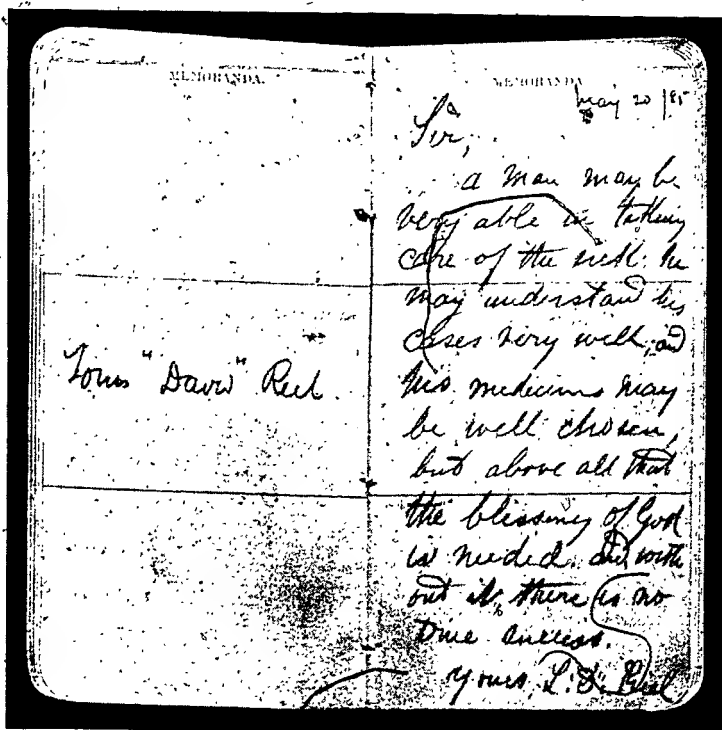 MEMORANDA.
Louis "David" Riel
MEMORANDA
May 20/85
Sir,
a man may be
very able in taking
care of the sick: he
may understand his
cases very well, and
his medicines may
be well chosen,
but above all that
the blessing of God
is needed. and with
out it, there is no
true success.
Yours, L. D. Riel